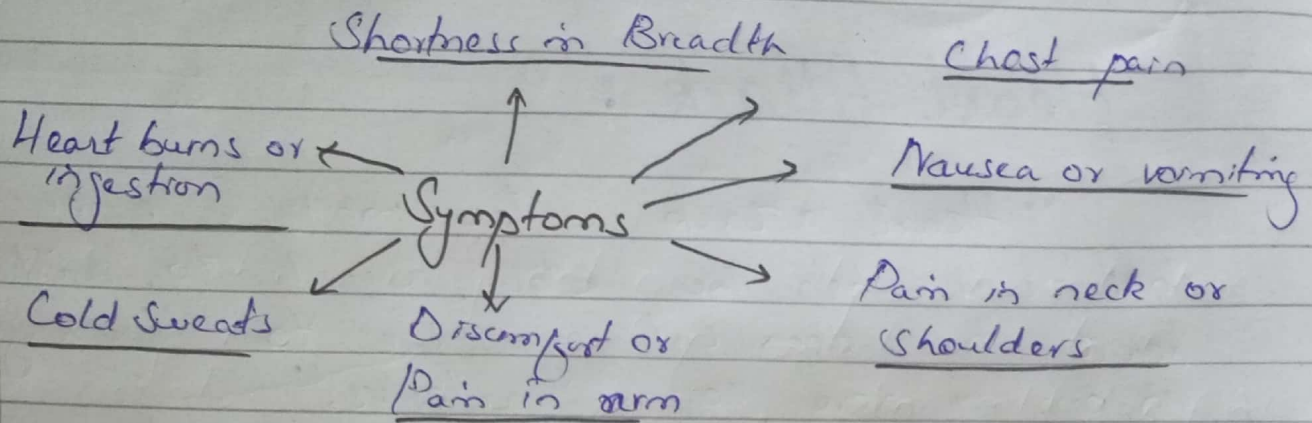 Shortness in Breadth
Chest pain
Heart burns or
ingestion
Nausea or vomiting
Symptoms
Cold Sweats
Discomfort or
Pain in arm
Pain in neck or
Shoulders